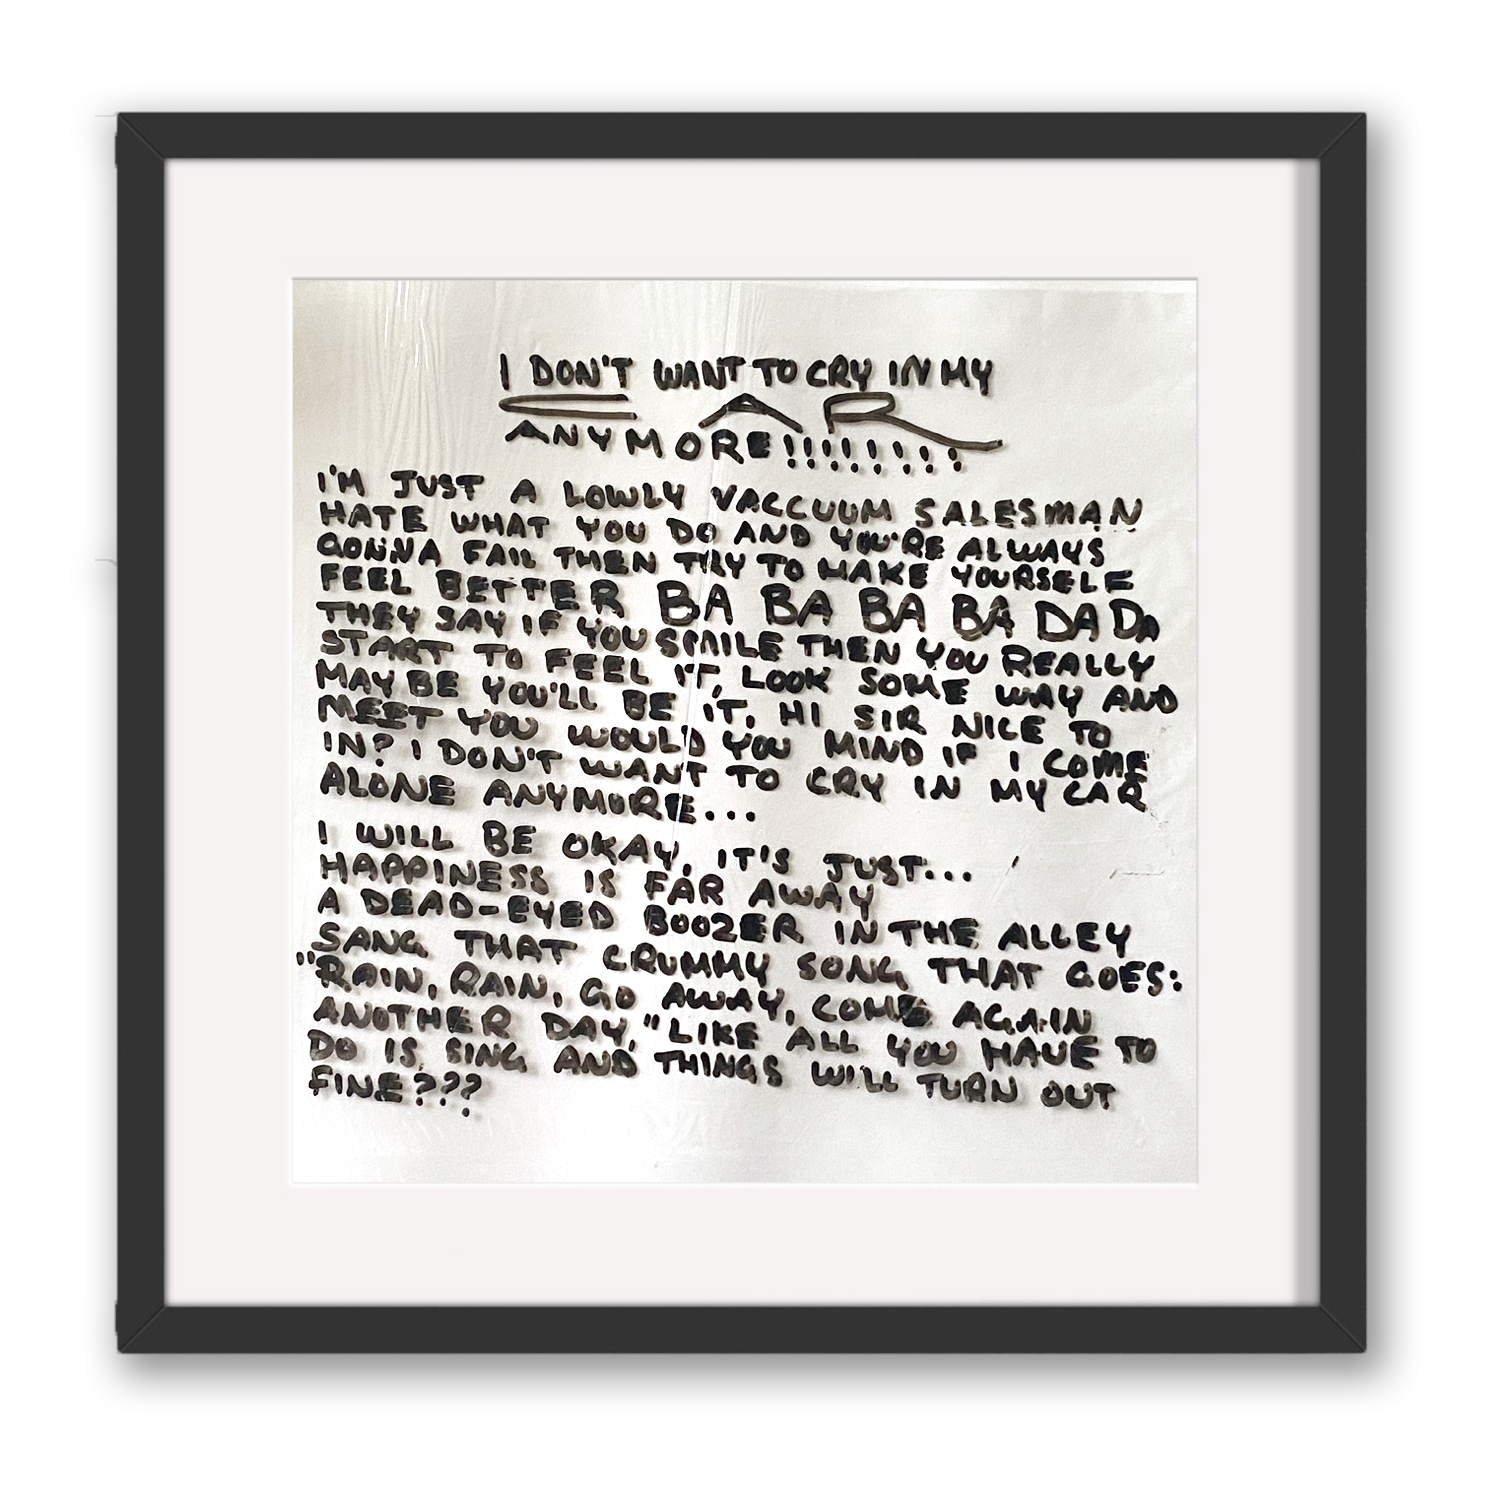 I DON'T WANT TO CRY IN MY
CAR
ANYMORE!!!!!!!!
I'M JUST A LOWLY VACCUUM SALESMAN
HATE WHAT YOU DO AND YOU'RE ALWAYS
GONNA FAIL THEN TRY TO MAKE YOURSELF
FEEL BETTER BA BA BA BA DA DA
THEY SAY IF YOU SMILE THEN YOU REALLY
START TO FEEL IT, LOOK SOME WAY AND
MAYBE YOU'LL BE IT. HI SIR NICE TO
MEET YOU WOULD YOU MIND IF I COME
IN? I DON'T WANT TO CRY IN MY CAR
ALONE ANYMORE...
I WILL BE OKAY, IT'S JUST...
HAPPINESS IS FAR AWAY
A DEAD-EYED BOOZER IN THE ALLEY
SANG THAT CRUMMY SONG THAT GOES:
"RAIN, RAIN, GO AWAY, COME AGAIN
ANOTHER DAY," LIKE ALL YOU HAVE TO
DO IS SING AND THINGS WILL TURN OUT
FINE???